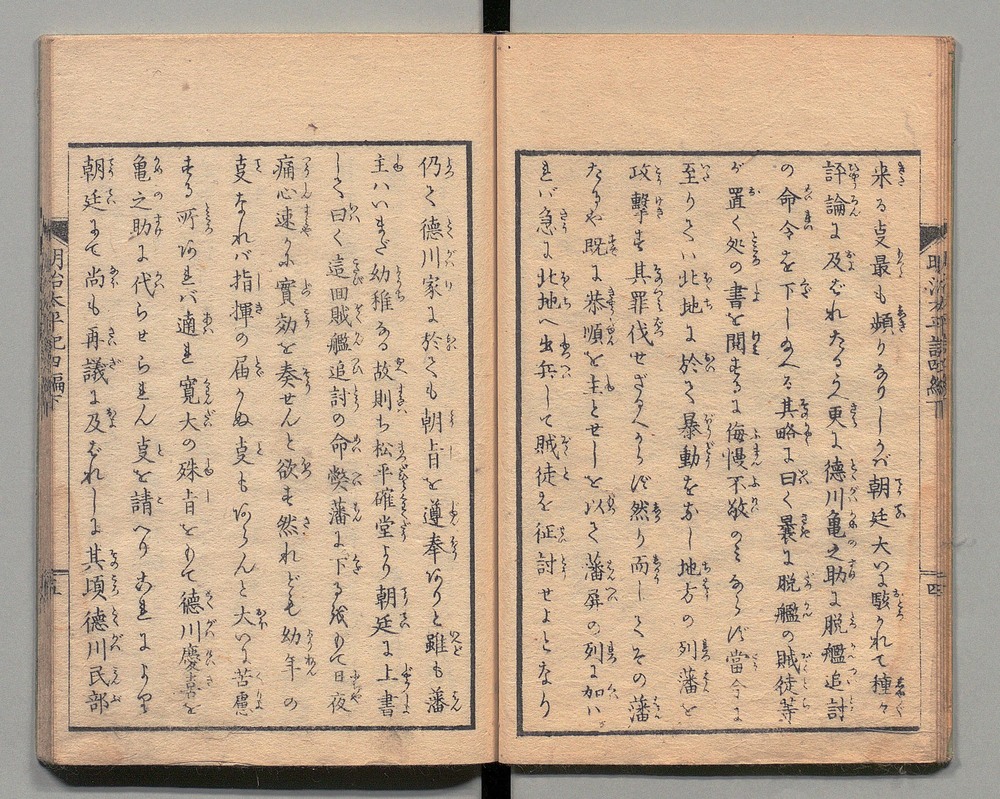 来る支最も頻りありしかバ朝廷大いに駭かれて種々
評論に及ばれたるが更に德川亀之助に脱艦追討
の命令を下し給へる其略に曰く曩に脱艦の賊徒等
が置く処の書を閲するに侮慢不敬のミならず當今に
至りてハ北地に於て暴動を為し地方の列藩を
政擊す其罪伐せざるべからず然り而してその藩
たるや既に恭順を主とせしを以て藩屏の列に加ハ
れバ急に北地へ出兵して賊徒を征討せよとなり
明治太平記四編下
四
仍て德川家に於ても朝旨を遵奉ありと雖も藩
主ハいまだ幼稚ある故則ち松平確堂より朝廷に上書
して曰く這回賊艦追討の命弊藩に下る我もて日夜
痛心速かに實効を奏せんと欲す然れども幼年の
支なれバ指揮の届かぬ支もあらんと大いに苦慮
する所あれバ適れ寛大の殊旨をもて德川慶喜を
亀之助に代らせられん支を請へりこれによりて
朝廷にて尚も再議に及ばれしに其頃德川民部
明治太平記四編下
五